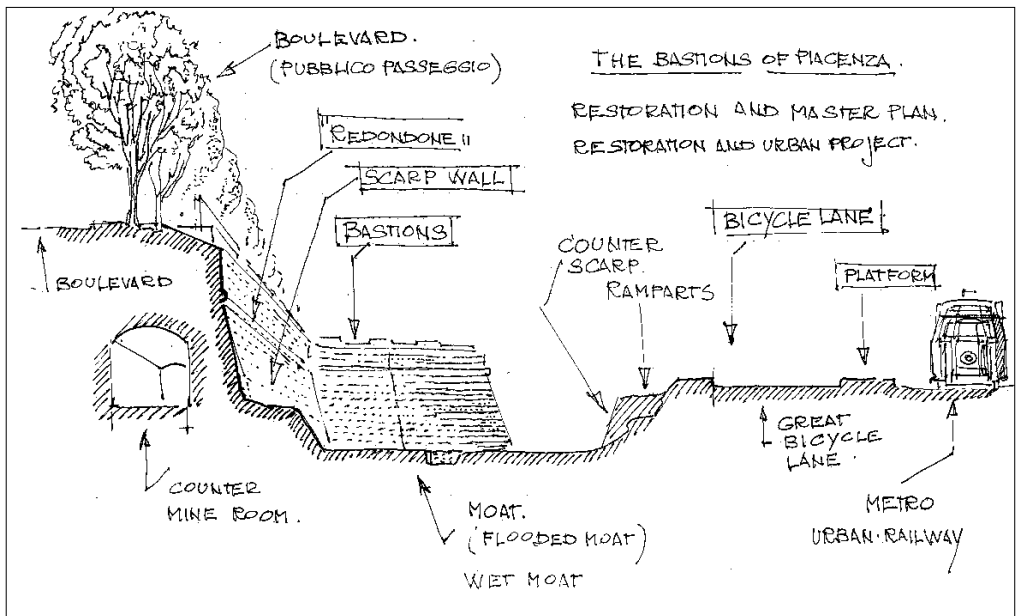 BOULEVARD.
(PUBBLICO PASSEGGIO)
THE BASTIONS OF PIACENZA.
RESTORATION AND MASTER PLAN.
RESTORATION AND URBAN PROJECT.
REDONDONE "
SCARP WALL
BASTIONS
BICYCLE LANE
COUNTER
SCARP.
RAMPARTS
PLATFORM
BOULEVARD
GREAT
BICYCLE
LANE.
COUNTER
MINE ROOM.
MOAT.
(FLOODED MOAT)
WET MOAT
METRO
URBAN.RAILWAY